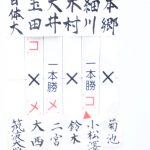 本郷
細川
木村
大井
玉田
日体大
コ
✕
一本勝
コ
✕
メ
一本勝
メ
✕
菊池
小松澤
鈴木
二宮
大西
筑波大